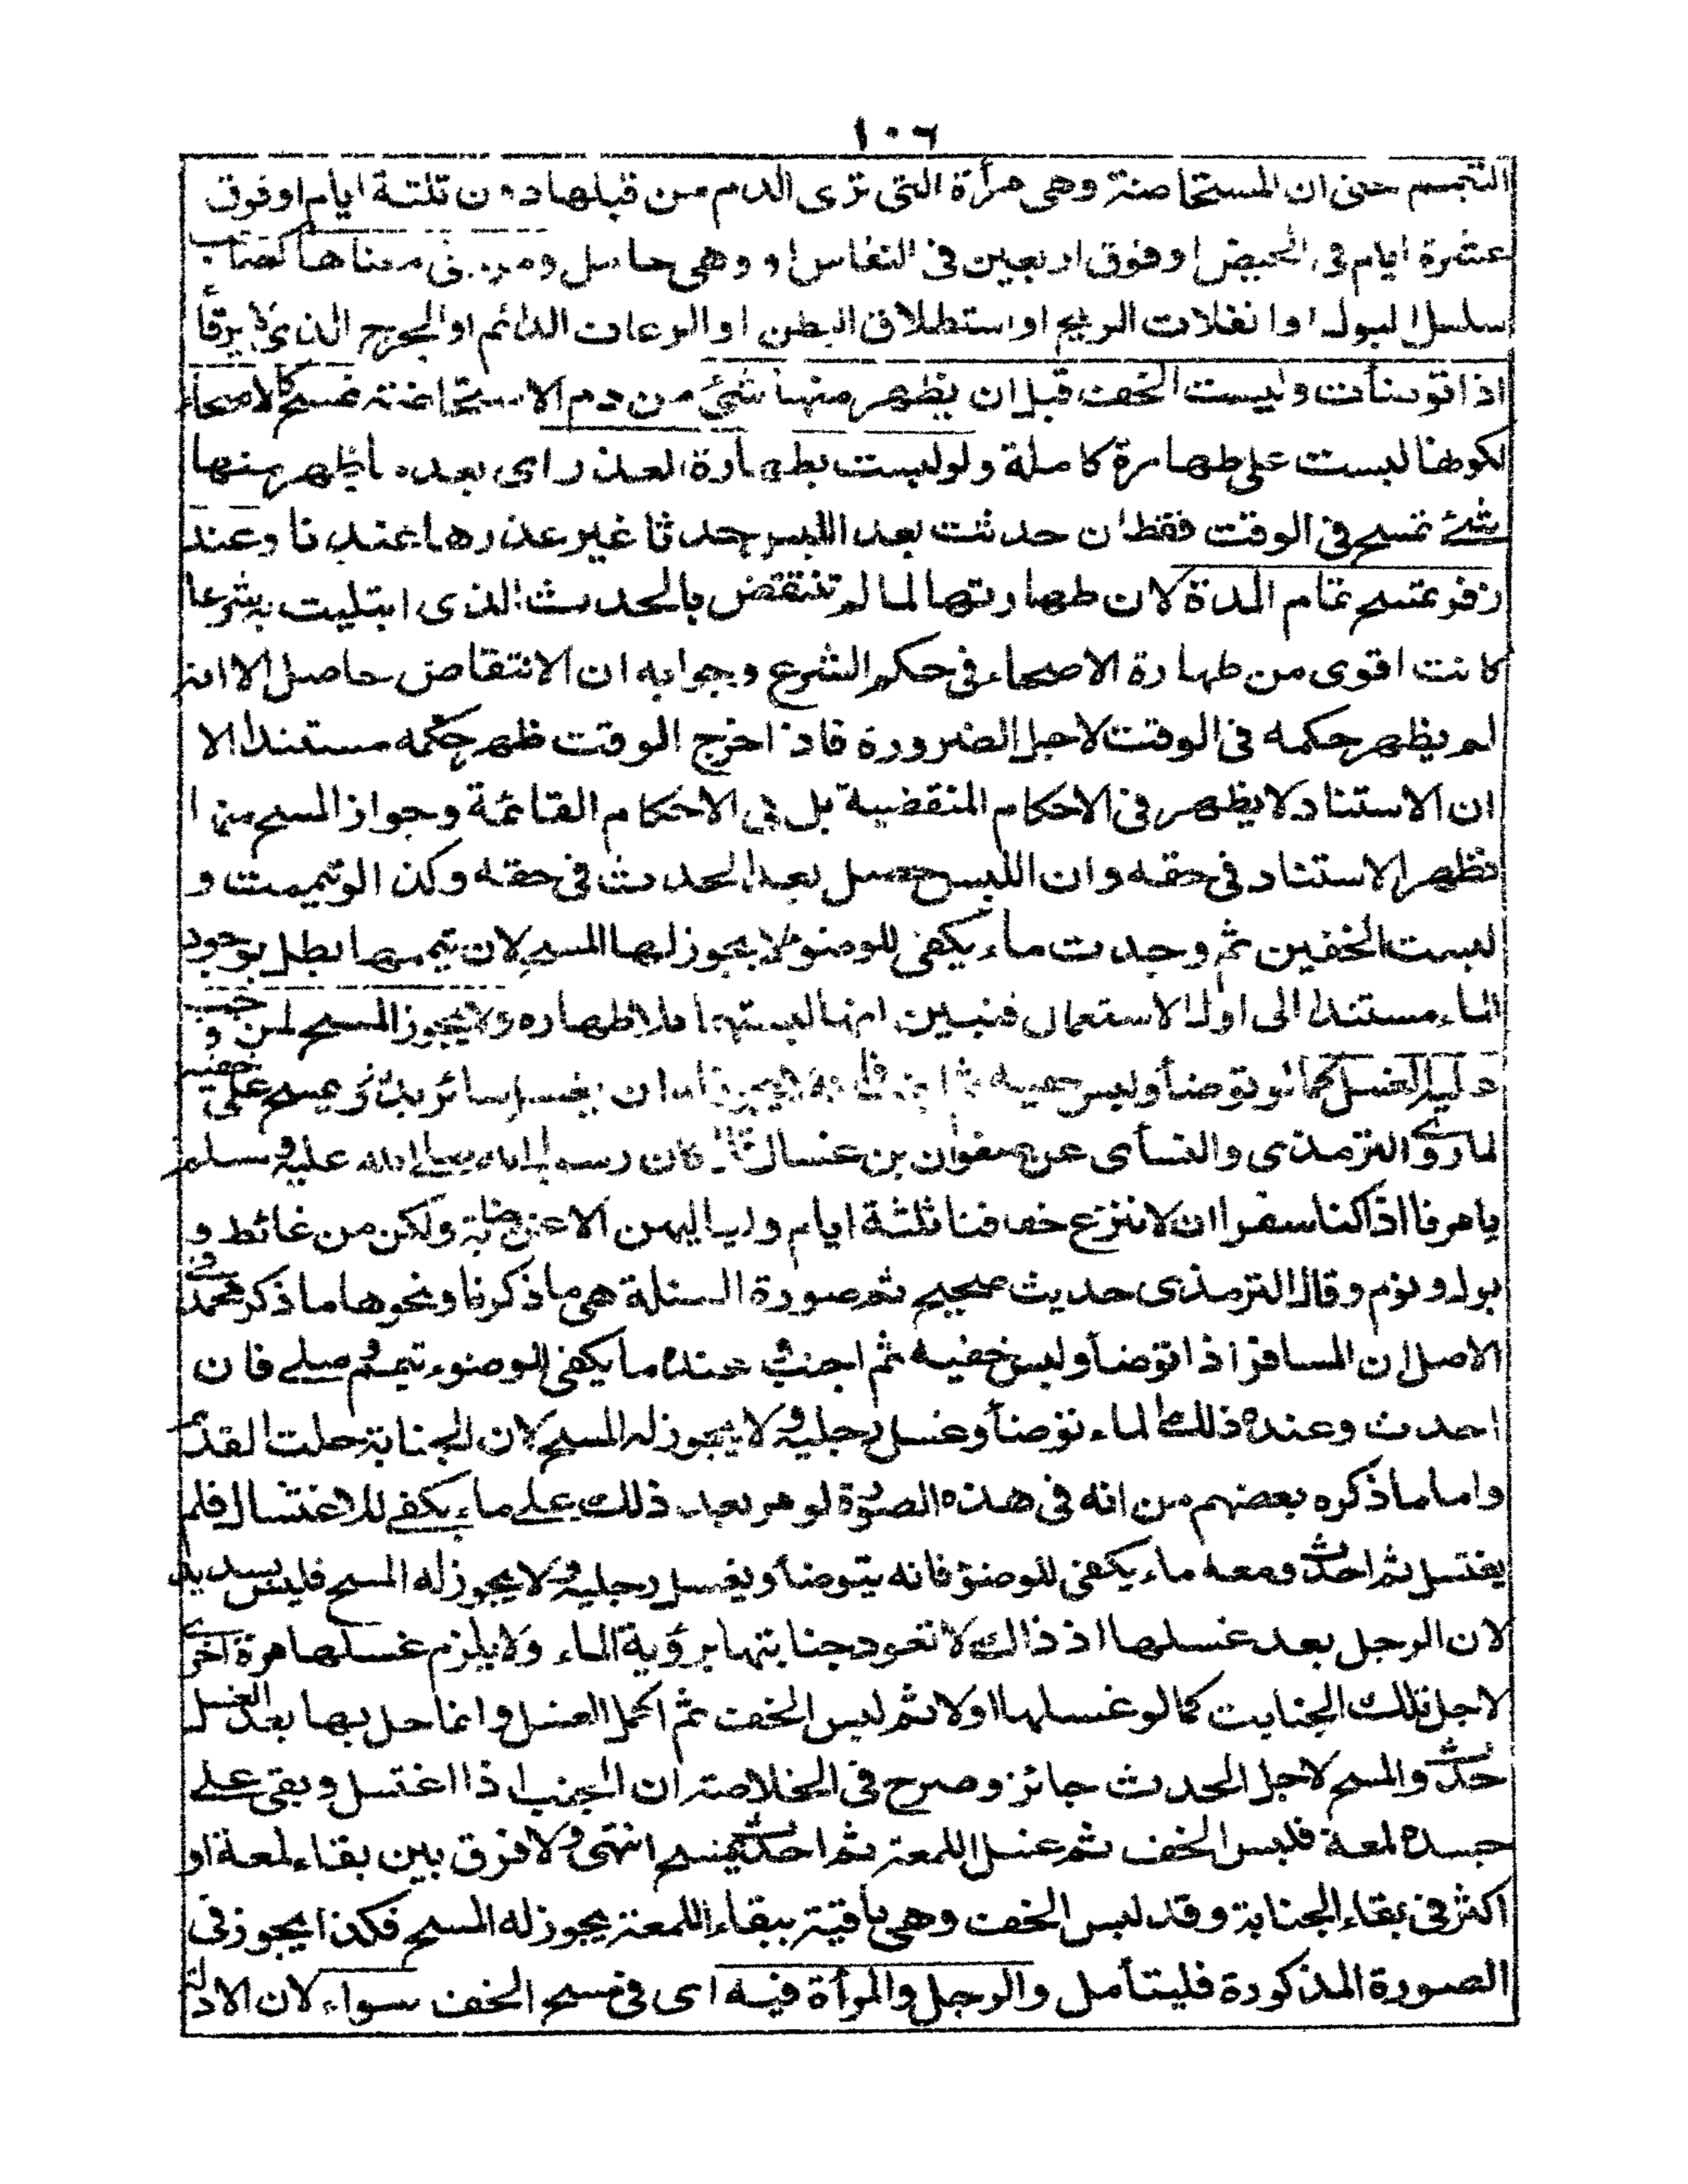 ١٠٦
التيمم حتى ان المستحاضة وهى مرأة التى ترى الدم من قبلها دون ثلثة ايام او فوق
عشرة ايام فى الحيض او فوق اربعين فى النفاس او وهى حامل ومن فى معناها كصاحب
سلسل البول او انفلات الريح او استطلاق البطن او الرعاف الدائم او الجرح الذى لا يرقأ
اذا توضأت ولبست الخف قبل ان يظهر منها شئ من دم الاستحاضة تمسح كالاصحاء
لكونها لبست على طهارة كاملة ولو لبست بطهارة العذر اى بعد ما يظهر منها
شئ تمسح فى الوقت فقط ان حدثت بعد اللبس حدثا غير عذرها عندنا وعند
زفر تمسح تمام المدة لان طهارتها لما لم تنتقض بالحدث الذى ابتليت به شرعا
كانت اقوى من طهارة الاصحاء فى حكم الشرع وجوابه ان الانتقاض حاصل الا انه
لم يظهر حكمه فى الوقت لاجل الضرورة فاذا خرج الوقت ظهر حكمه مستندا الا
ان الاستناد لا يظهر فى الاحكام المنقضية بل فى الاحكام القائمة وجواز المسح منها
فظهر الاستناد فى حقه وان اللبس حصل بعد الحدث فى حقه وكذا لو تيممت و
لبست الخفين ثم وجدت ماء يكفى للوضوء لا يجوز لها المسح لان تيممها بطل بوجود
الماء مستندا الى اول الاستعمال فتبين انها لبستهما بلا طهاره ولا يجوز المسح لمن وجب
عليه الغسل كما لو توضأ ولبس خفيه ثم اجنب فانه لا يجوز له ان يغسل سائر بدنه ويمسح على خفيه
لما روى الترمذى والنسأى عن صفوان بن عسال قال كان رسول الله صلى الله عليه وسلم
يامرنا اذا كنا سفرا ان لا ننزع خفافنا ثلثة ايام ولياليهن الا عن جنابة ولكن من غائط و
بول ونوم وقال الترمذى حديث صحيح ثم صورة المسئلة هى ما ذكرنا ونحوها ما ذكر محمد فى
الاصل ان المسافر اذا توضأ ولبس خفيه ثم اجنب و عنده ما يكفى للوضوء تيمم و صلى فان
احدث وعنده ذلك الماء توضأ وغسل رجليه و لا يجوز له المسح لان الجنابة حلت القدم
واما ما ذكره بعضهم من انه فى هذه الصورة لو مر بعد ذلك على ماء يكفى للاغتسال فلم
يغتسل ثم احدث ومعه ماء يكفى للوضوء فانه يتوضأ ويغسل رجليه و لا يجوز له المسح فليس بسديد
لان الرجل بعد غسلها اذ ذاك لا تعود جنابتها برؤية الماء ولا يلزم غسلها مرة اخرى
لاجل تلك الجنابت كما لو غسلها اولا ثم لبس الخف ثم اكمل الغسل وانما حل بها بعد الغسل
حدث والمسح لاجل الحدث جائز وصرح فى الخلاصة ان الجنب اذا اغتسل وبقى على
جسده لمعة فلبس الخف ثم غسل اللمعة ثم احدث يمسح انتهى و لا فرق بين بقاء لمعة او
اكثر فى بقاء الجنابة وقد لبس الخف وهى باقية ببقاء اللمعة يجوز له المسح فكذا يجوز فى
الصورة المذكورة فليتأمل والرجل والمرأة فيه اى فى مسح الخف سواء لان الادلة